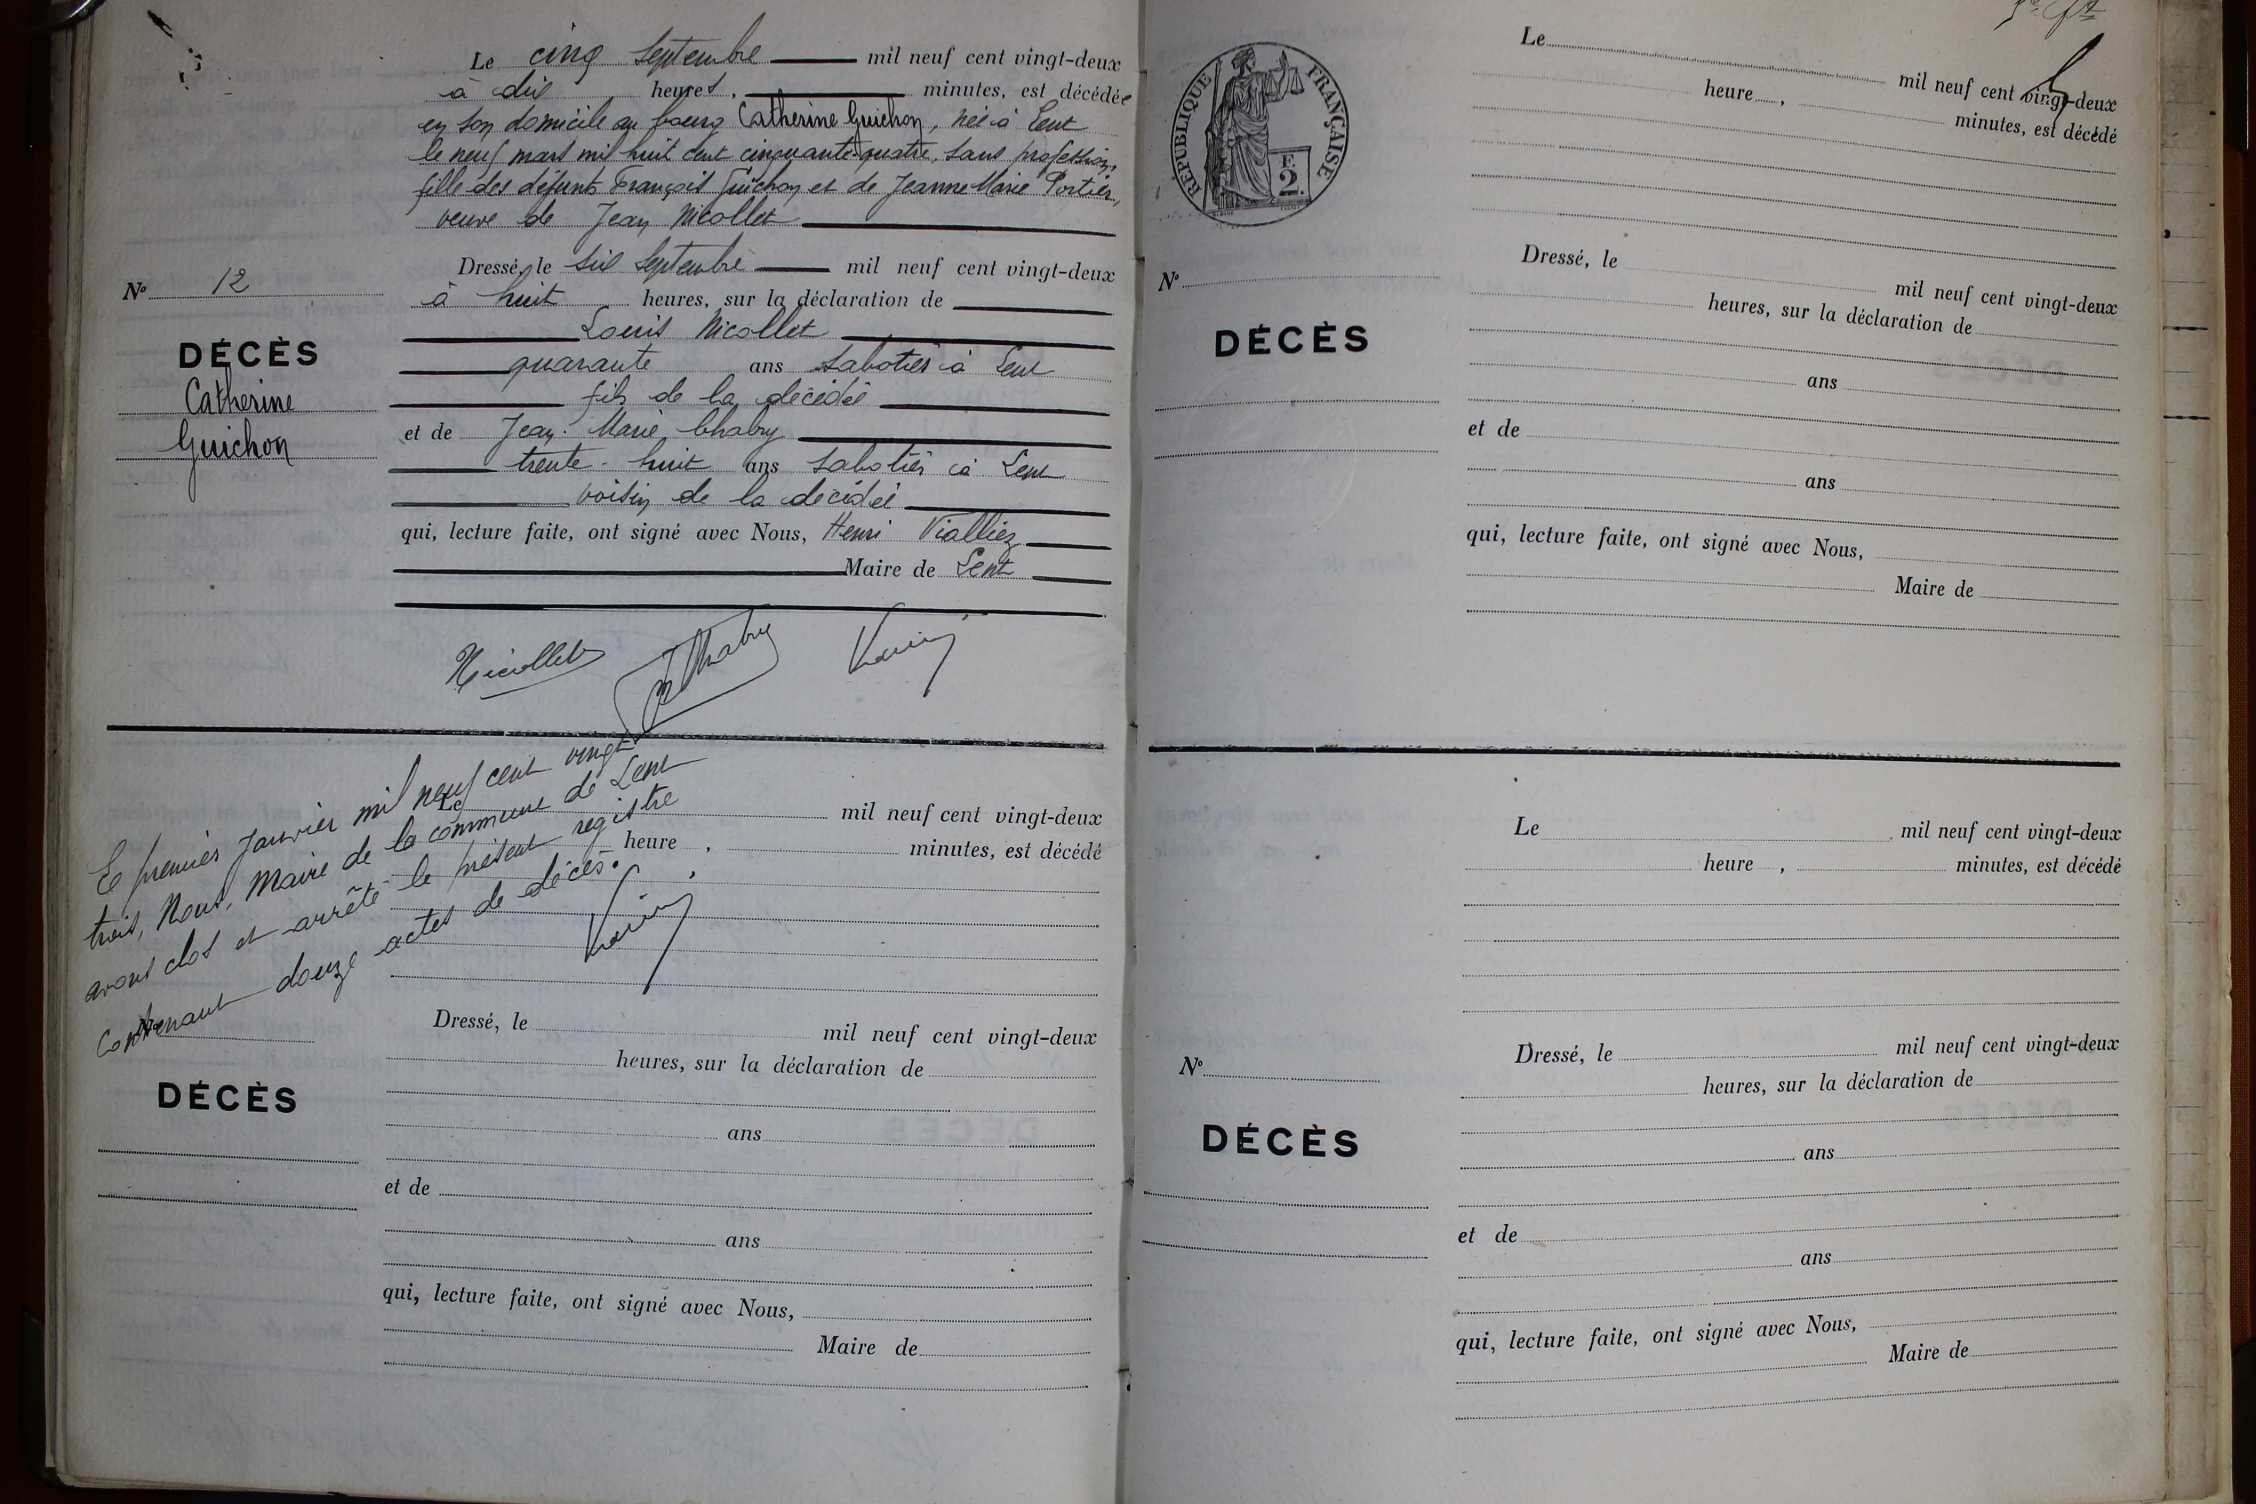 Le cinq Septembre mil neuf cent vingt-deux
à dix heures, minutes, est décédée
en son domicile au bourg Catherine Guichon, née à Lent
le neuf mars mil huit cent cinquante-quatre, sans profession,
fille des défunts François Guichon et de Jeanne Marie Portier,
veuve de Jean Nicollet
Dressé, le six Septembre mil neuf cent vingt-deux
à huit heures, sur la déclaration de
Louis Nicollet
quarante ans sabotier à Lent
fils de la décédée
et de Jean-Marie Chabry
trente-huit ans sabotier à Lent
voisin de la décédée
qui, lecture faite, ont signé avec Nous, Henri Vialliez
Maire de Lent
No 12
DÉCÈS
Catherine
Guichon
Nicollet Chabry
Le premier Janvier mil neuf cent vingt
trois, Nous, Maire de la commune de Lent
avons clos et arrêté le présent registre
Contenant douze actes de décès.
Le mil neuf cent vingt-deux
heure , minutes, est décédé
Dressé, le mil neuf cent vingt-deux
heures, sur la déclaration de
DÉCÈS
ans
et de
ans
qui, lecture faite, ont signé avec Nous,
Maire de
RÉPUBLIQUE FRANÇAISE
F.
2.
Le mil neuf cent vingt-deux
heure , minutes, est décédé
Dressé, le mil neuf cent vingt-deux
No
heures, sur la déclaration de
DÉCÈS
ans
et de
ans
qui, lecture faite, ont signé avec Nous,
Maire de
Le mil neuf cent vingt-deux
heure , minutes, est décédé
Dressé, le mil neuf cent vingt-deux
No
heures, sur la déclaration de
DÉCÈS
ans
et de
ans
qui, lecture faite, ont signé avec Nous,
Maire de